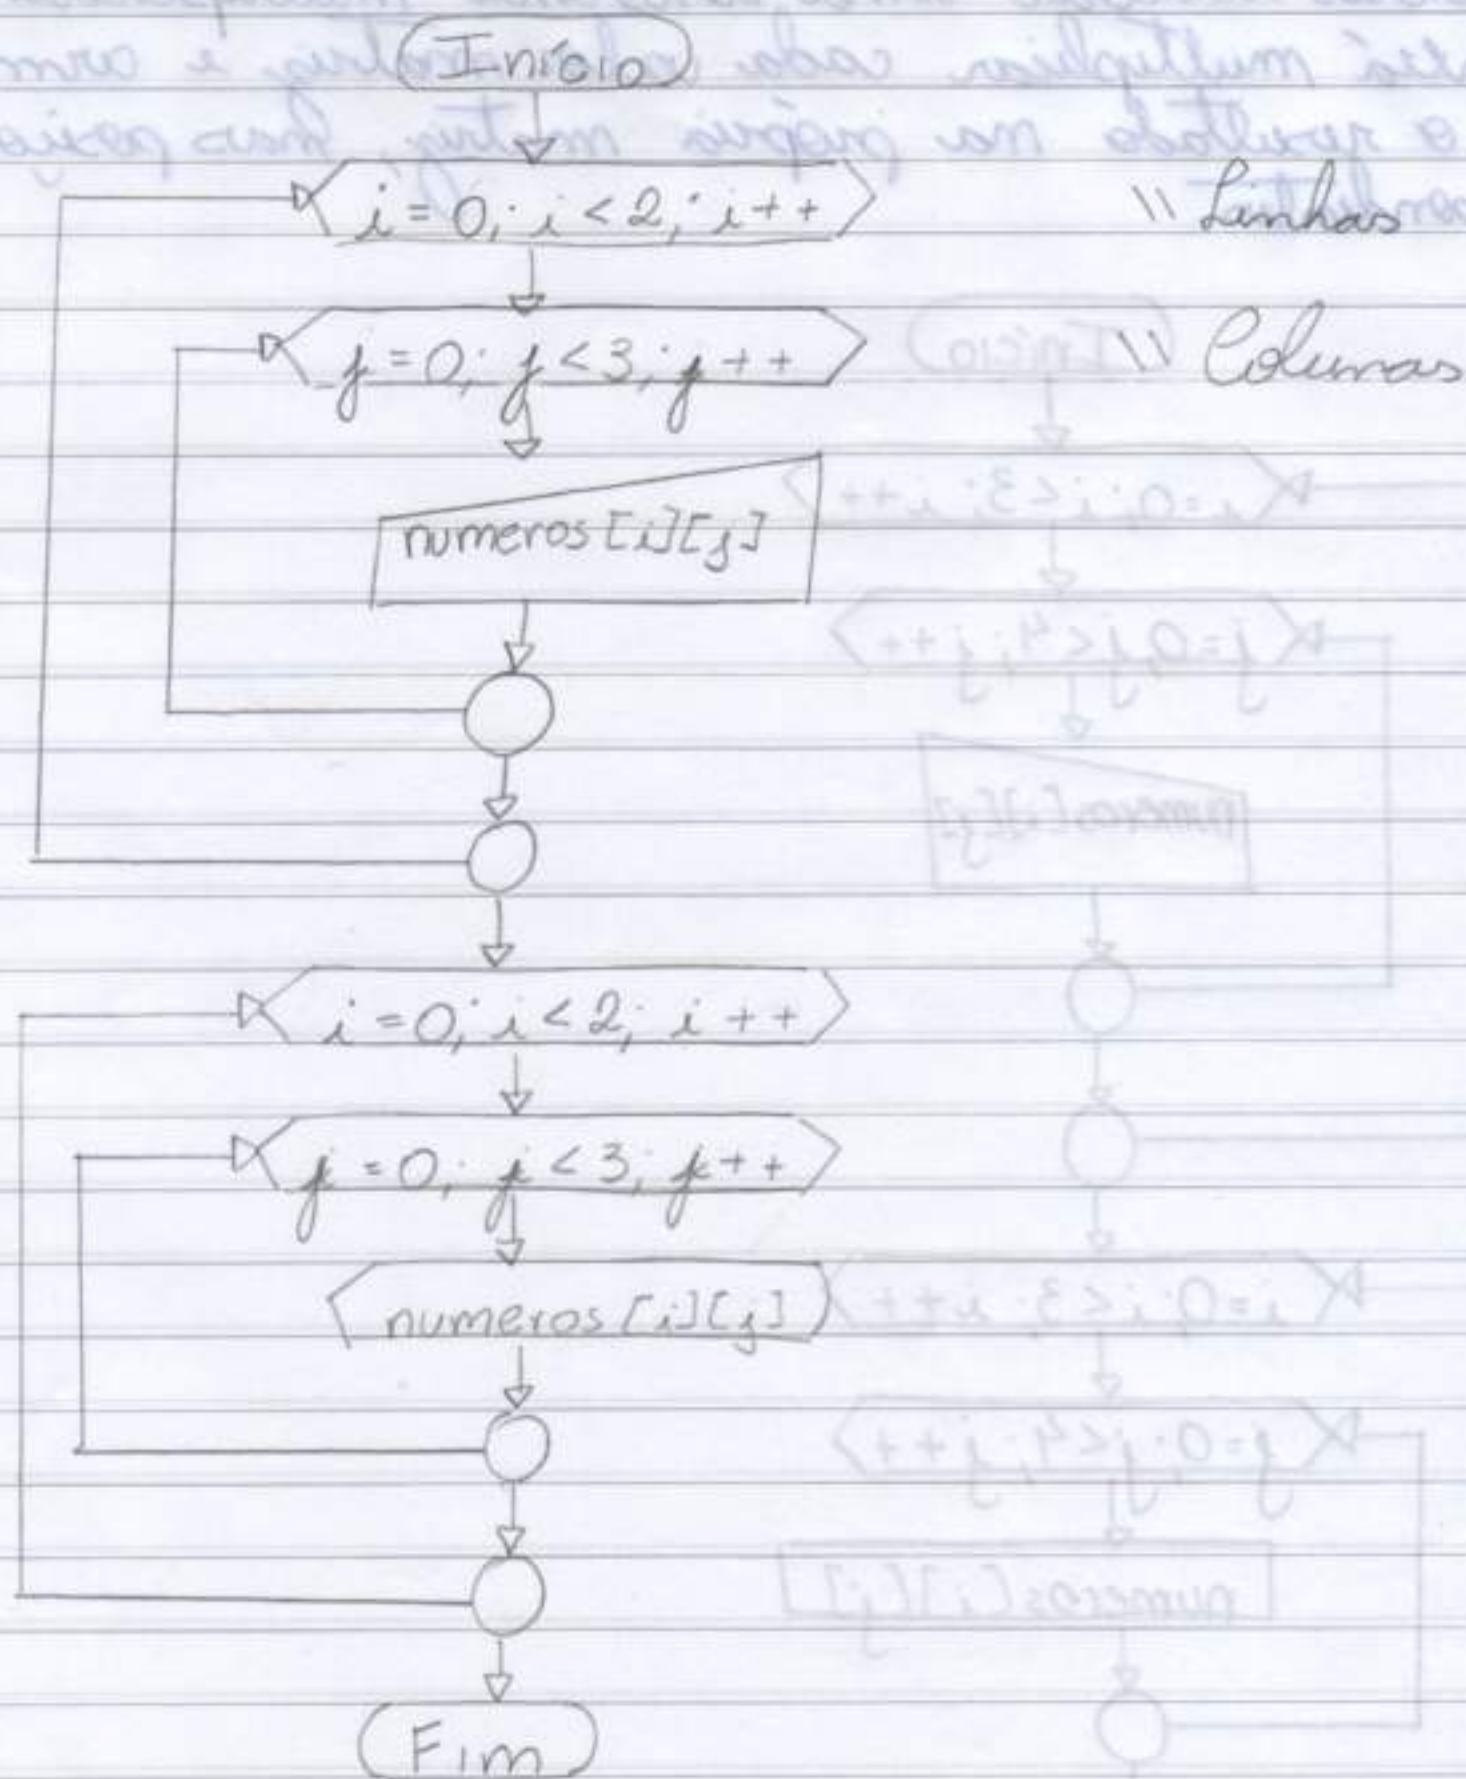 Início
i = 0; i < 2; i++ \\ Linhas
j = 0; j < 3; j++ \\ Colunas
numeros [i][j]
i = 0; i < 2; i++
j = 0; j < 3; j++
numeros [i][j]
Fim